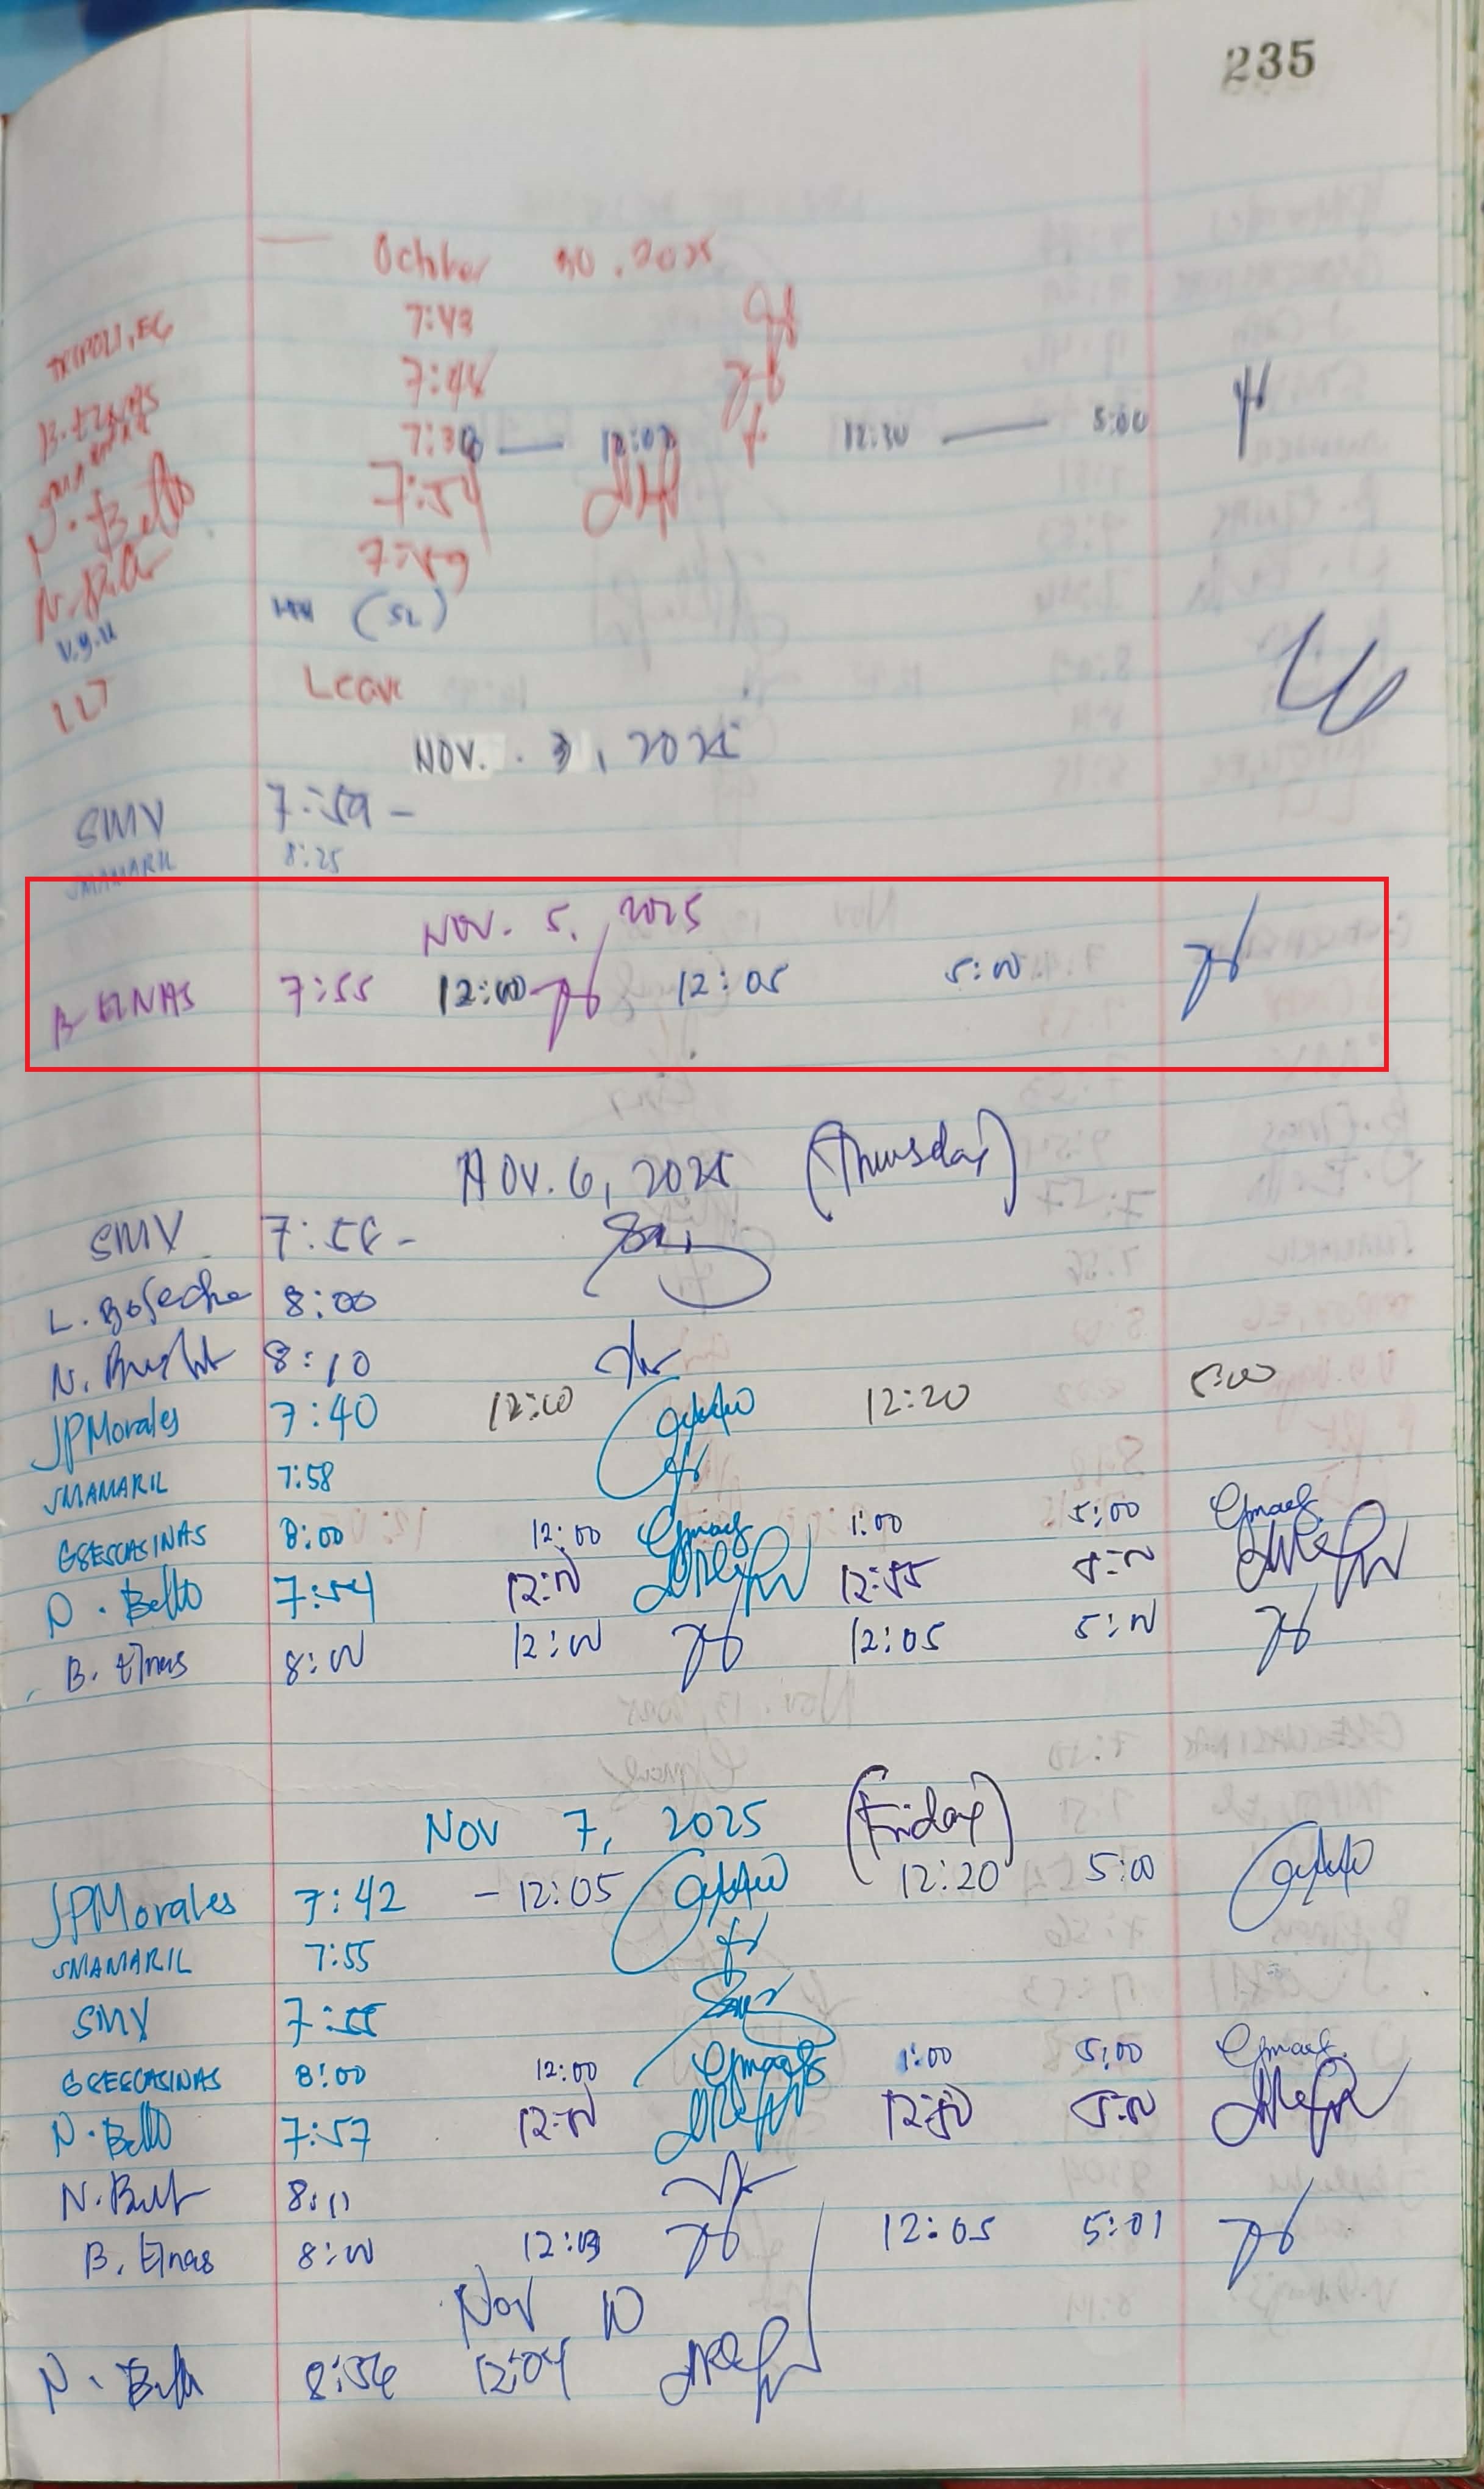 235
October 30, 2025
TRIPOLI, EG 7:43
B. Elnas 7:48
7:30 — 12:02 12:30 — 5:00
N. Bello 7:54
7:59
V.g.u (SL)
LLT Leave
NOV. 3, 2025
SMV 7:59 -
JMAMARIL 8:25
NOV. 5, 2025
B. ELNAS 7:55 12:00 12:05 5:00
NOV. 6, 2025 (Thursday)
SMV 7:58 -
L. 8:00
N. 8:10
JPMorales 7:40 12:00 12:20 5:00
JMAMARIL 7:58
GSESCASINAS 8:00 12:00 1:00 5:00
N. Bello 7:54 12:00 12:55 5:00
B. Elnas 8:00 12:00 12:05 5:00
Nov 7, 2025 (Friday)
JPMorales 7:42 - 12:05 12:20 5:00
JMAMARIL 7:55
SMV 7:55
GSESCASINAS 8:00 12:00 1:00 5:00
N. Bello 7:57 12:00 12:50 5:00
N. 8:11
B. Elnas 8:00 12:03 12:05 5:01
Nov 10
N. Bello 8:56 12:04